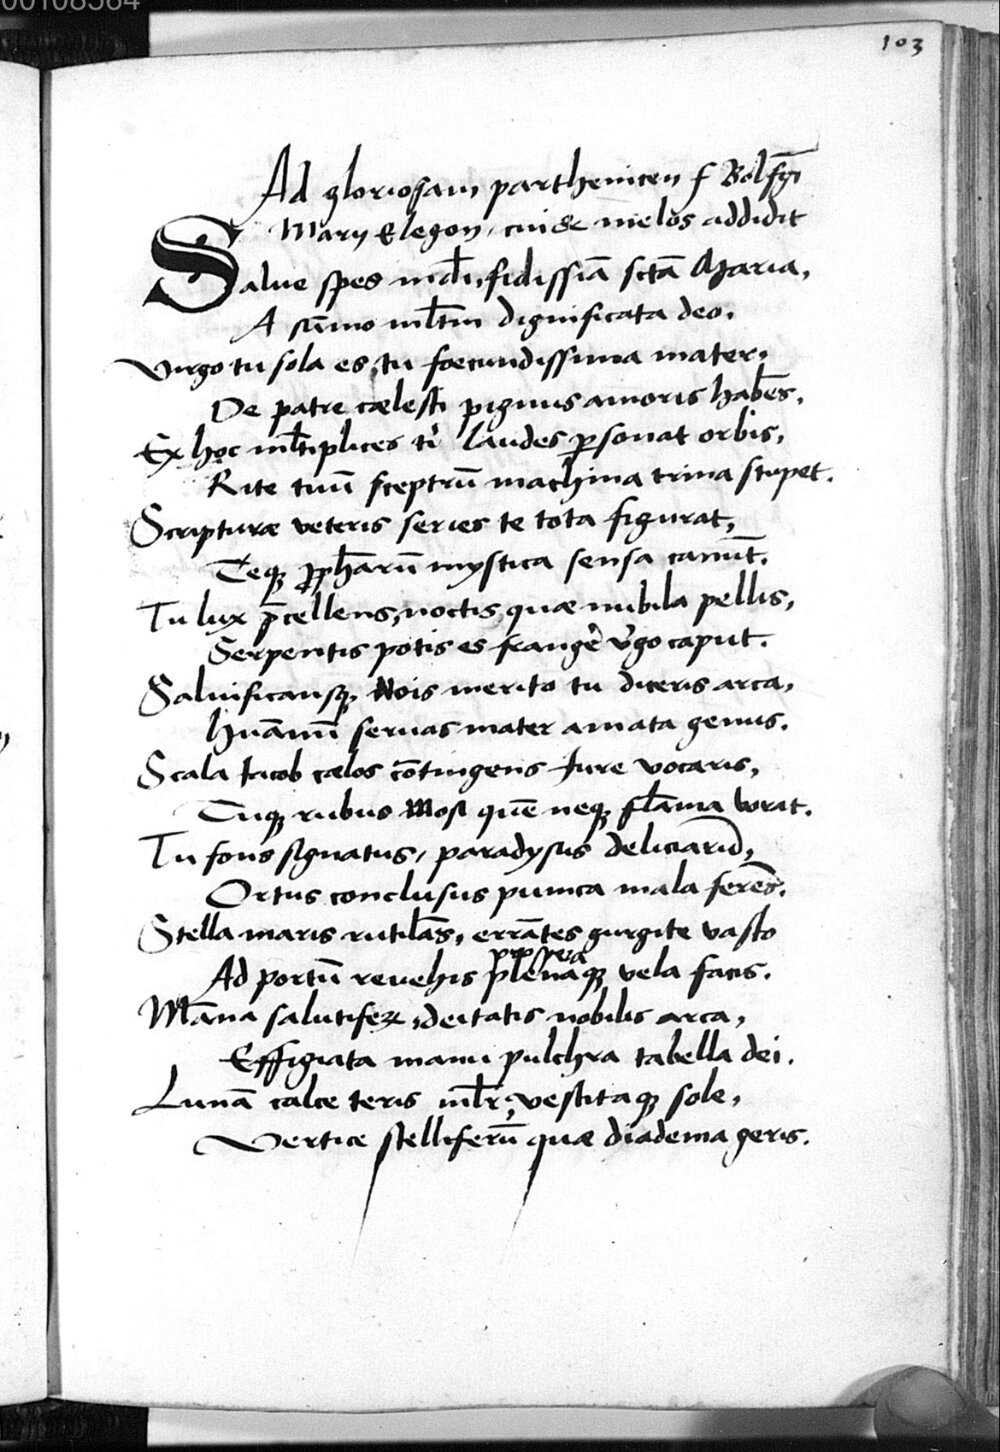 103
Ad gloriosam parthenicen f Bolfgi
Marij Elegon, cui & melos addidit
Salue spes mdi, fidissiā sctā Maria,
A sūmo mltm dignificata deo.
Virgo tu sola es, tu foecundissima mater.
De patre cælesti pignus amoris habēs.
Ex hoc mltiplices ti laudes psonat orbis,
Rite tuū sceptrū machina trina stupet.
Scripturæ veteris series te tota figurat,
Teq; pphārū mystica sensa canūt.
Tu lux p̄cellens, noctis quæ nubila pellis,
Serpentis potis es frangē v̄go caput.
Saluificansq; Nois merito tu diceris arca,
Huāmū seruas mater amata genus.
Scala Iacob cælos cōtingens Iure vocaris,
Tuq; rubus Mosi quē neq; flāma vorat.
Tu fons signatus, paradysus deliciarū,
Ortus conclusus punica mala ferēs.
Stella maris rutilās, errātes gurgite vasto
prospera
Ad portū reuehis plenaq; vela facis.
Māna salutiferꝝ, deitatis nobilis arca,
Effigiata manu pulchra tabella dei.
Lunā calce teris mlr, vestitaq; sole,
Vertice stelliferū quæ diadema geris.